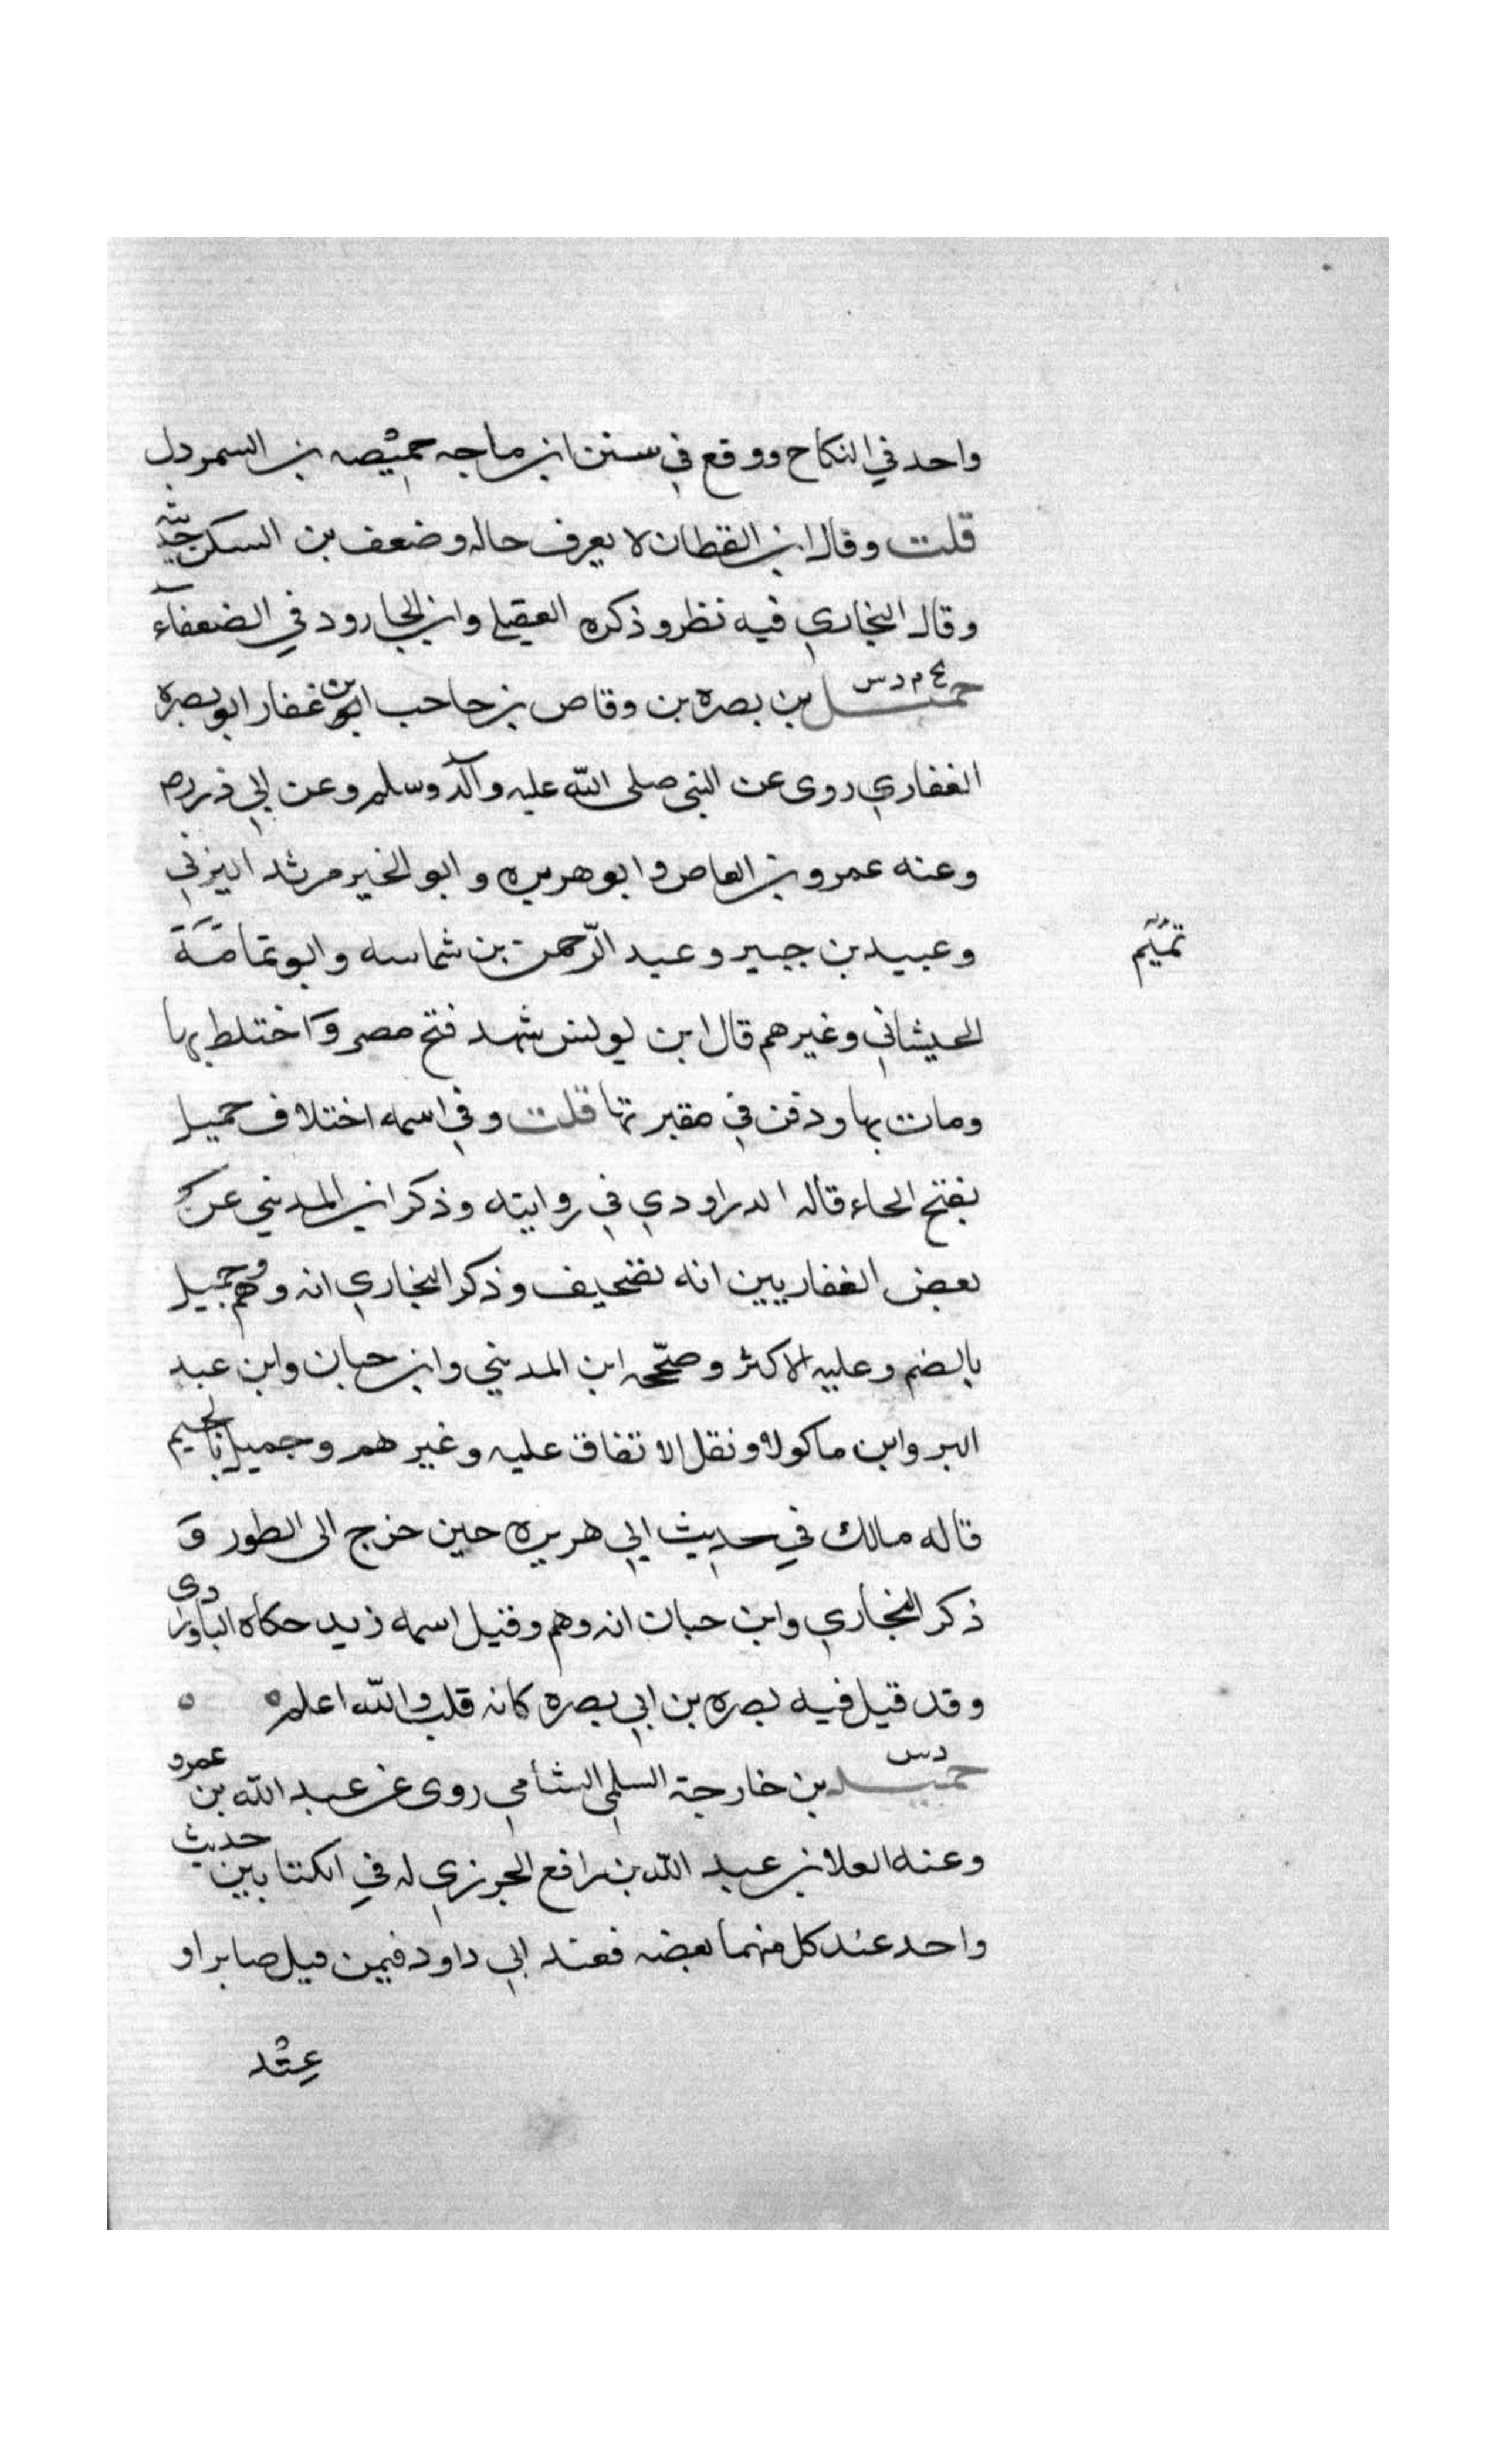 واحد في النكاح ووقع في سنن ابن ماجه حميصه بن السمردل
قلت وقال ابن القطان لا يعرف حاله وضعف بن السكن حديثه
وقال البخاري فيه نظر وذكره العقيلي وابن الجارود في الضعفاء
بخ م د س
حميل بن بصره بن وقاص بن حاجب بن غفار ابو بصره
الغفاري روى عن النبي صلى الله عليه وآله وسلم وعن ابي ذر
وعنه عمرو بن العاص وابو هريره وابو الخير مرثد اليزني
وعبيد بن جبير وعبد الرّحمن بن شماسه وابو تمامة
تميم
الحيشاني وغيرهم قال ابن يونس شهد فتح مصر واختلط بها
ومات بها ودفن في مقبرتها قلت وفي اسمه اختلاف حميل
بفتح الحاء قاله الدراودي في روايته وذكر ابن المديني عن
بعض الغفاريين انه تصحيف وذكر البخاري انه وهم حميل
بالضم وعليه الاكثر وصحّحه ابن المديني وابن حبان وابن عبد
البر وابن ماكولا ونقل الاتفاق عليه وغيرهم وجميل بالجيم
قاله مالك في حديث ابي هريره حين خرج الى الطور و
ذكر البخاري وابن حبان انه وهم وقيل اسمه زيد حكاه الباوردى
وقد قيل فيه بصره بن ابي بصره كانه قلب والله اعلم
د س
حميد بن خارجة السلمي الشامي روى عن عبد الله بن عمرو
وعنه العلا بن عبد الله بن رافع الجزري له في الكتابين حديث
واحد عند كل منهما بعضه فعند ابي داود فيمن قيل صابرا و
عند